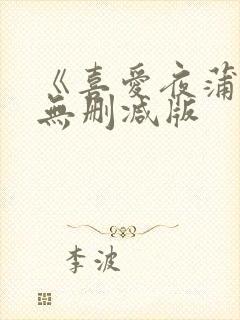 《喜愛夜蒲
無刪減版
李波